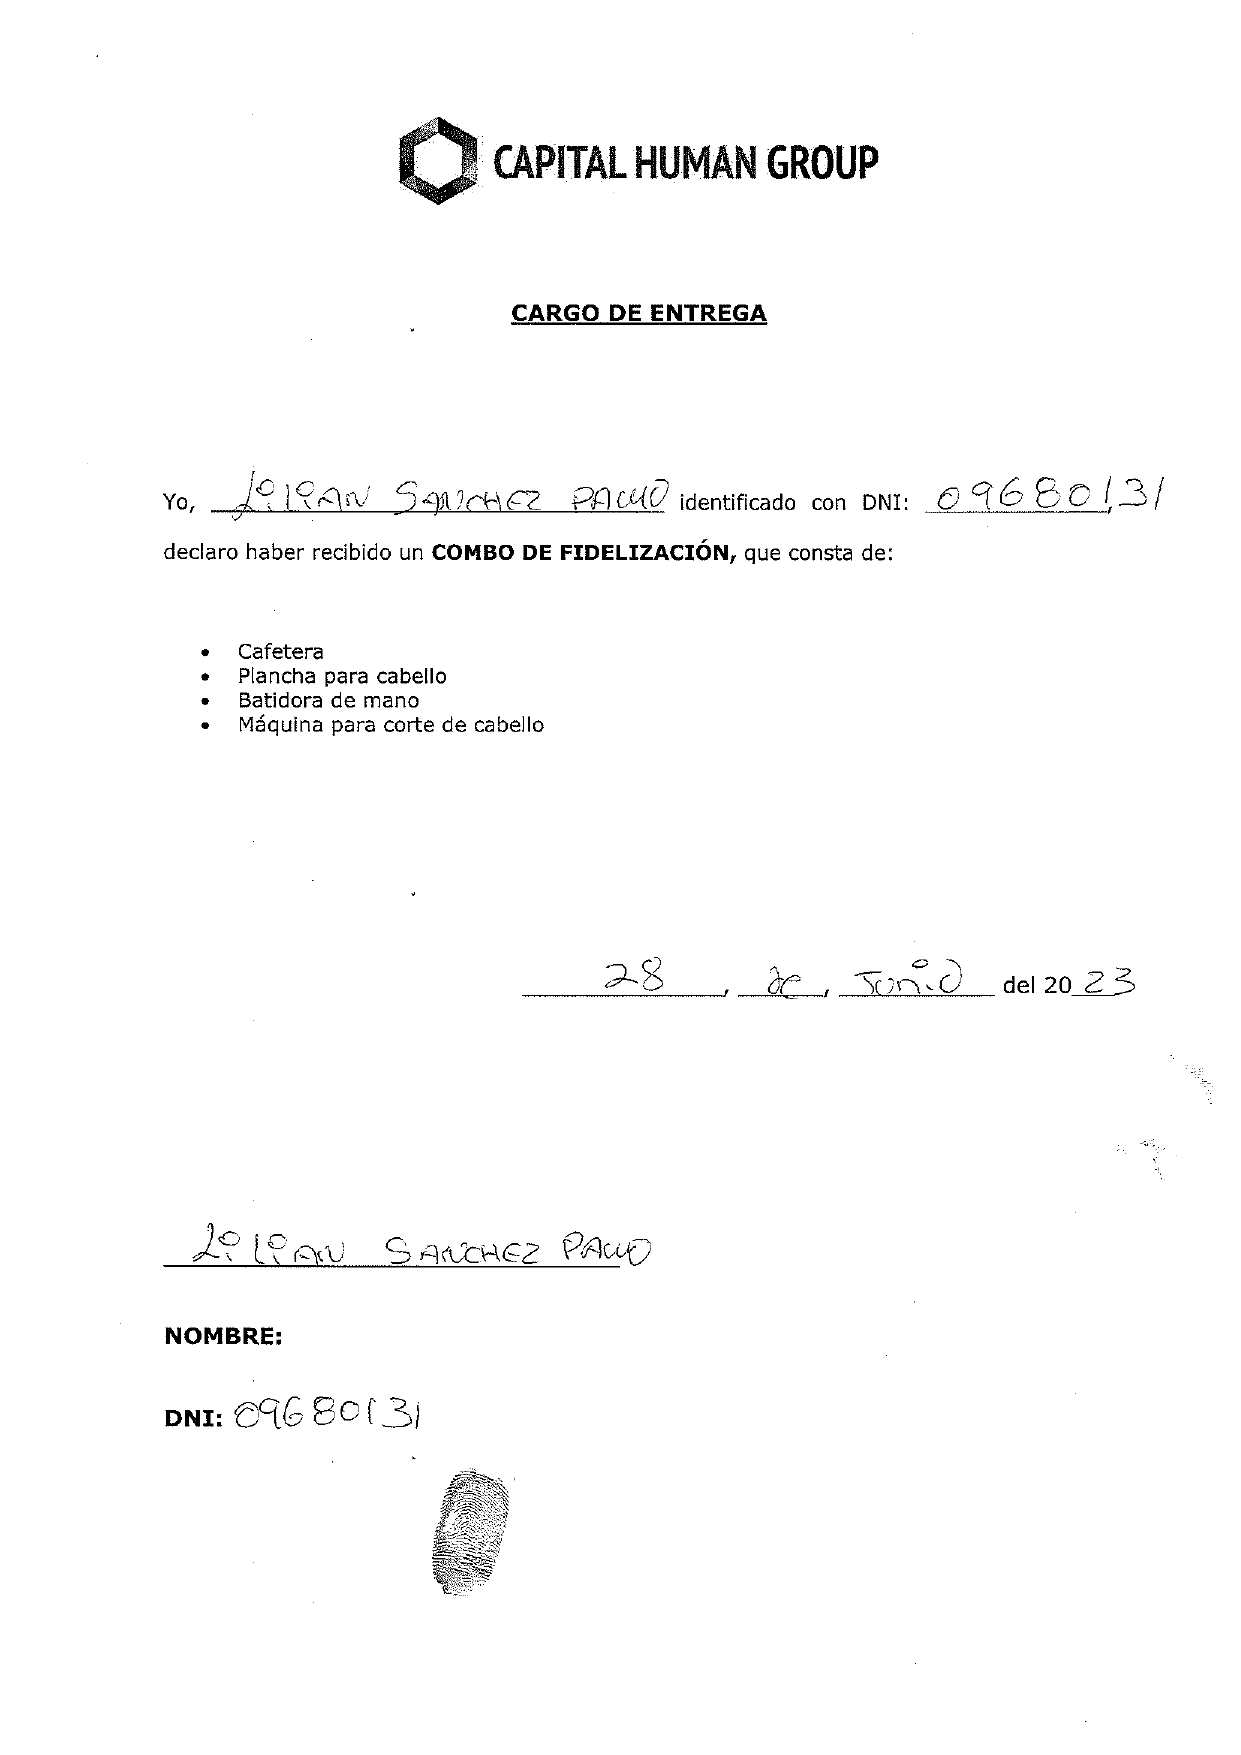 CAPITAL HUMAN GROUP
CARGO DE ENTREGA
Yo, LiLiAN SANCHEZ identificado con DNI: 09680131
declaro haber recibido un COMBO DE FIDELIZACIÓN, que consta de:
• Cafetera
• Plancha para cabello
• Batidora de mano
• Máquina para corte de cabello
28, de, del 2023
LiLiAN SANCHEZ
NOMBRE:
DNI: 09680131